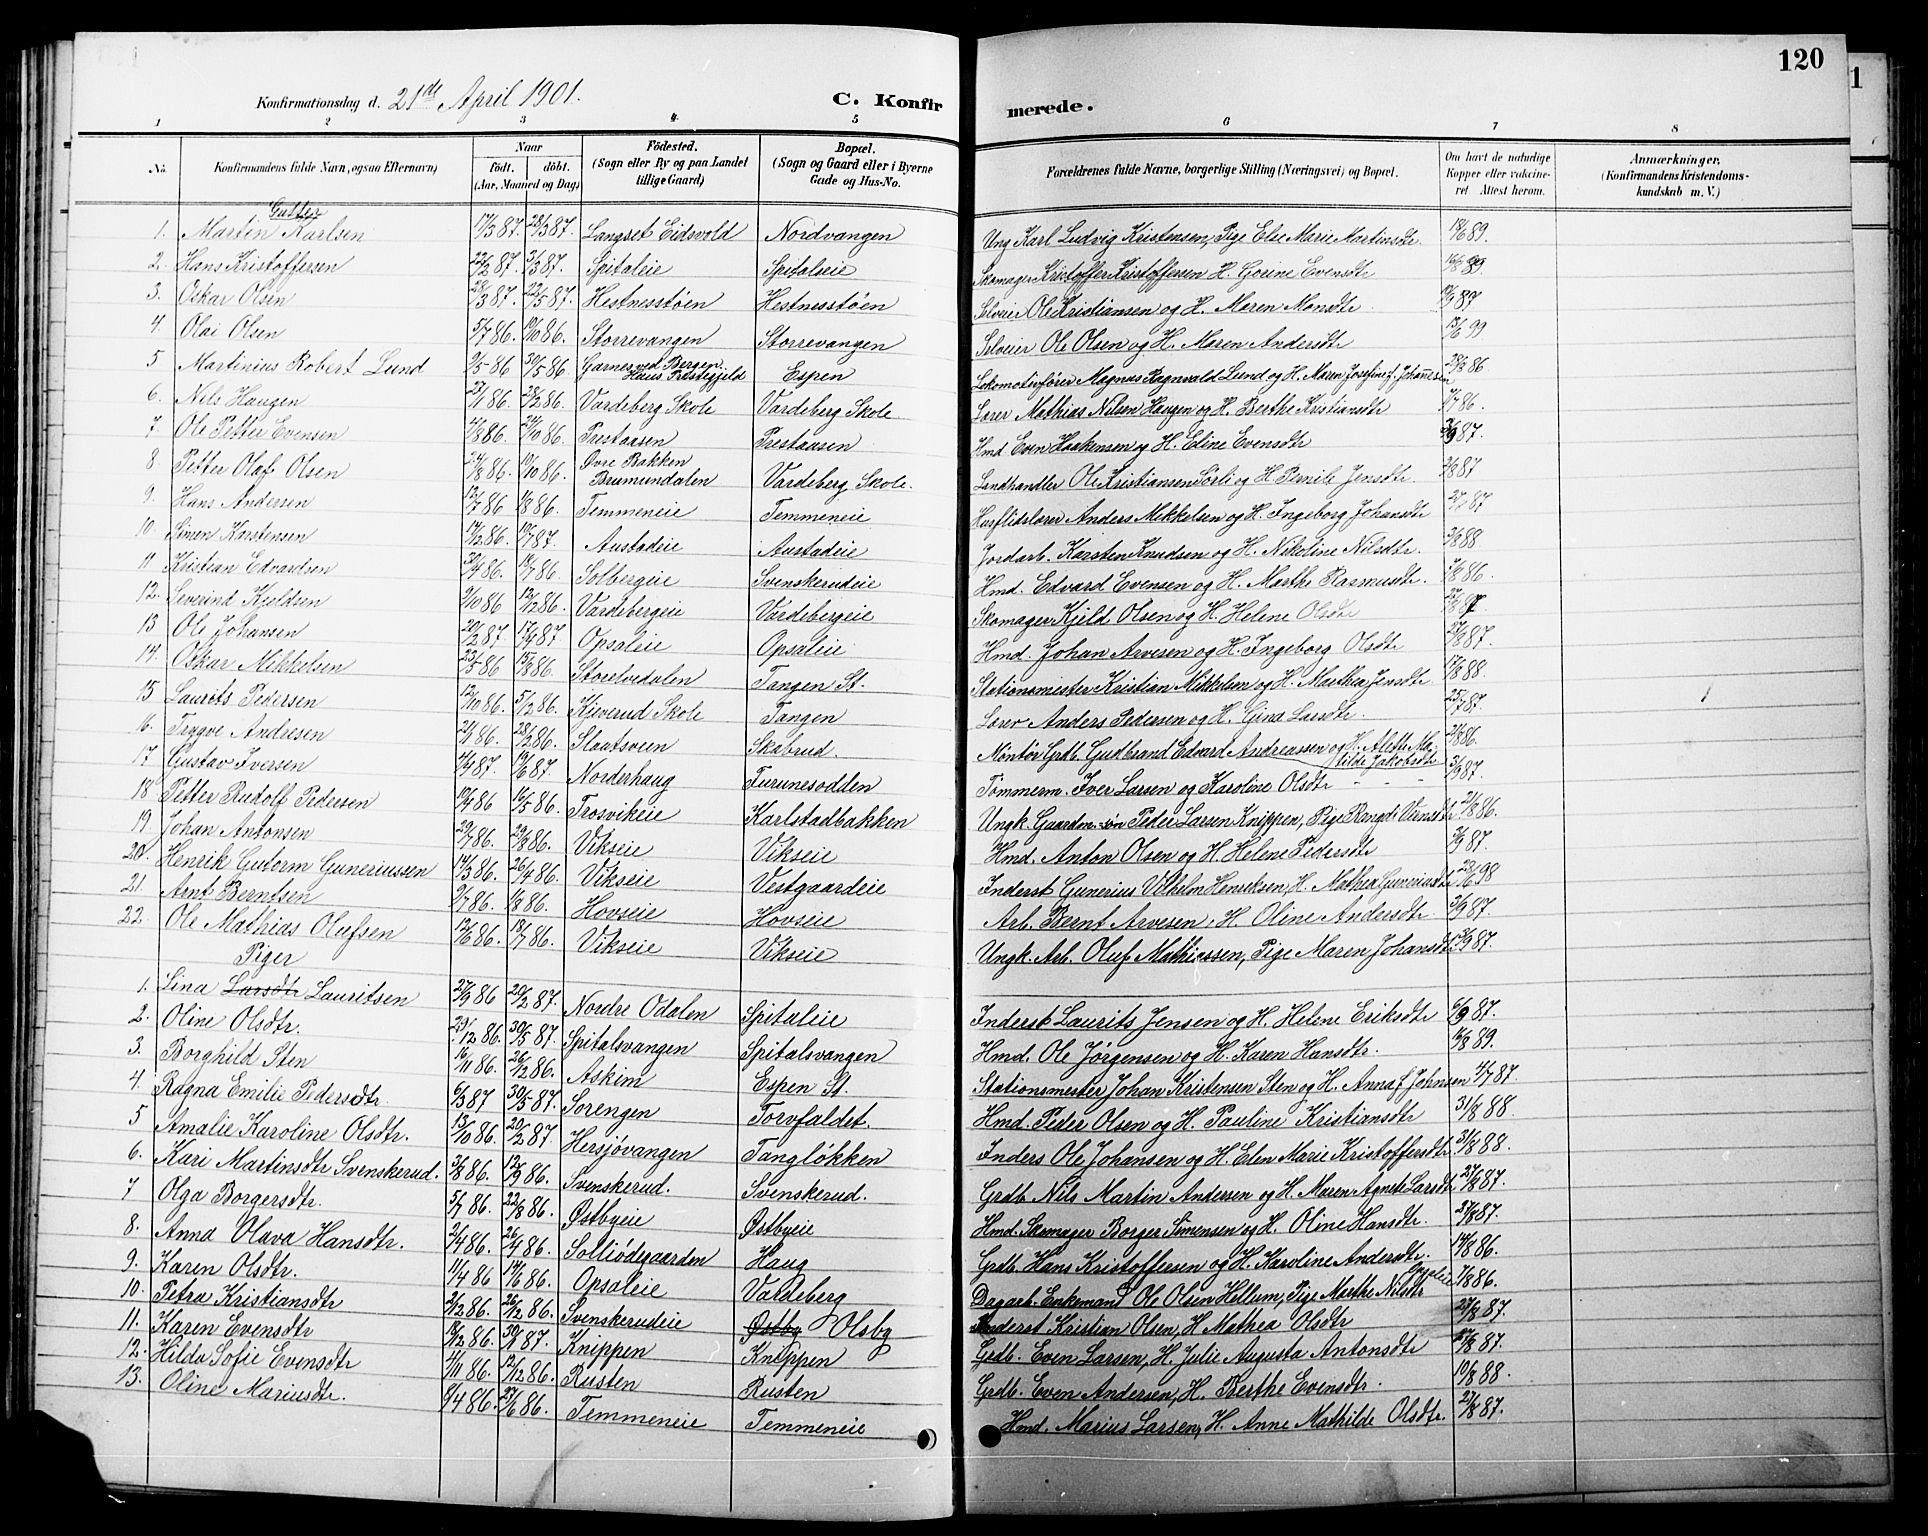 120
Konfirmationsdag d. 21de April 1901.
C. Konfirmerede.
1 2 3 4 5 6 7 8
No. Konfirmandens fulde Navn, ogsaa Efternavn) Naar födt. döbt. (Aar, Maaned og Dag) Födested. (Sogn eller By og paa Landet tillige Gaard) Bopæl. (Sogn og Gaard eller i Byerne Gade og Hus-No. Forældrenes fulde Navne, borgerlige Stilling (Næringsvei) og Bopæl. Om havt de naturlige Kopper eller vaccineret Attest herom. Anmærkninger. (Konfirmandens Kristendomskundskab m. V.)
Gutter
1. Martin Karlsen 17/3 87. 28/3 87. Langset Eidsvold Nordvangen Ung Karl Ludvig Kristensen, Pige Else Marie Martinsdtr 18/6 89.
2. Hans Kristoffersen 22/2 87. 3/3 87. Spitaleie Spitaleie Skomager Kristoffer Kristoffersen H. Gorine Evensdtr
3. Oskar Olsen 28/3 87. 22/5 87. Hestnesstöen Hestnesstöen Selveier Ole Kristiansen og H. Maren Monsdtr
4. Olai Olsen 5/7 86. 10/10 86. Storrevangen Storrevangen Selveier Ole Olsen og H. Maren Andersdtr 13/6 99
5 Martinius Robert Lund 2/5 86 30/5 86 Garnes ved Bergen. Haus Prestegjeld Espen Lokomotivfører Magnus Ragnvald Lund og H. Maren Josefine f. Johannesen 28/8 86.
6. Nils Haugen 27/1 86. 28/2 86. Vardeberg Skole Vardeberg Skole Lærer Mathias Nilsen Haugen og H. Berthe Kristiansdtr
7. Ole Petter Evensen 4/8 86. 24/10 86. Prestaasen Prestaasen Hmd Even Haakensen og H. Eline Evensdtr
8. Petter Olaf Olsen 24/8 86. 10/10 86. Övre Bakken Brumundalen Vardeberg Skole. Landhandler Ole Kristiansen Sörli og H Pernile Jensdtr
9. Hans Andersen 12/7 86 1/8 86. Temmeneie Temmeneie Husflidslærer Anders Mikkelsen og H. Ingeborg Johansdtr
10. Simen Karstensen 17/12 86. 10/7 87. Austadeie Austadeie Jordarb. Karsten Knudsen og H. Nikoline Nilsdtr.
11 Kristian Edvardsen 30/4 86. 18/7 86. Solbergeie Svenskerudeie Hmd. Edvard Evensen og H. Marthe Rasmusdtr.
12. Severind Kjeldsen 9/10 86 12/12 86. Vardebergeie Vardebergeie Skomager Kjeld Olsen og H. Helene Olsdtr
13 Ole Johansen 20/2 87. 17/4 87. Opsaleie Opsaleie Hmd. Johan Arvesen og H. Ingeborg Olsdtr
14. Oskar Mikkelsen 23/5 86 15/8 86. Storelvedalen Tangen St. Stationsmester Kristian Mikkelsen og H. Marthea Jensdtr 17/8 88.
15 Laurits Pedersen 12/10 86. 5/12 86. Kjeverud Skole Tangen Lærer Anders Pedersen og H. Gina Larsdtr. 25/7 87.
16. Trygve Andresen 21/1 86. 28/2 86. Slaatsveen Skabrud. Möntör Grdb. Gudbrand Edvard Andreassen og H. Alette Matilde Jakobsdtr 2/8 86.
17 Gustav Iversen 4/4 87. 19/6 87. Norderhaug Furunesodden Tömmerm. Iver Larsen og Karoline Olsdtr
18 Petter Rudolf Pedersen 10/4 86 16/5 86. Trosvikeie Karlstadbakken Ungk. Gaardm. sön Peder Larsen Knippen, Pige Rangdi Verne dtr. 2/8 86.
19. Johan Antonsen 22/7 86. 29/8 86. Vikseie Vikseie Hmd. Anton Olsen og H Helene Pedersdtr 3/9 87.
20. Henrik Gutorm Guneriussen 14/3 86. 26/4 86. Vikseie Vestgaardeie Inderst Gunerius Vilhelm Henriksen, H. Mathea Guneriusdtr 23/6 98
21. Arnt Berntsen 2/7 86. 1/8 86. Hovseie Hovseie Arb. Bernt Arvesen, H. Oline Andersdtr 3/9 87.
22. Ole Mathias Olufsen 12/6 86. 18/7 86. Vikseie Vikseie Ungk. Arb. Oluf Mathiassen, Pige Maren Johansdtr. 3/9 87.
Piger
1. Lina Larsdtr Lauritsen 27/9 86 20/2 87. Nordre Odalen Spitaleie Inderst Laurits Jensen og H. Helene Eriksdtr 6/9 87.
2. Oline Olsdtr. 29/12 86. 30/5 87. Spitalsvangen Spitalsvangen Hmd. Ole Jörgensen og H. Karen Hansdtr. 10/8 89.
3. Borghild Sten 16/11 86. 26/12 86. Askim Espen St. Stationsmester Johan Kristensen Sten og H. Anna f. Johnsen 4/7 87.
4. Ragna Emilie Pedersdtr. 6/3 87 30/5 87. Sorengen Torvfaldet. Hmd. Peder Olsen og H. Pauline Kristiansdtr 31/8 88.
5 Amalie Karoline Olsdtr. 13/10 86. 20/2 87. Hersjövangen Tanglökken Inders Ole Johansen og H. Elen Marie Kristoffersdtr. 31/8 88.
6. Kari Martinsdtr Svenskerud. 3/8 86. 12/9 86. Svenskerud. Svenskerud. Grdb. Nils Martin Andersen og H. Maren Agnete Larsdtr 27/8 87.
7 Olga Borgersdtr. 5/7 86. 22/8 86. Østbyeie Østbyeie Hmd. Skomager Borger Simensen og H. Oline Hansdtr. 27/8 87.
8. Anna Olava Hansdtr. 2/4 86. 26/4 86. Solliödegaarden Haug Grdb. Hans Kristoffersen og H. Karoline Andersdtr. 14/8 86.
9. Karen Olsdtr. 11/4 86 14/6 86. Opsaleie Vardeberg Dagarb. Enkemand Ole Olsen Hellum, Pige Marthe Nilsdtr Opsaleie 7/8 86.
10. Petra Kristiansdtr 2/12 86. 26/12 86. Svenskerudeie Østby Olsby Inderst Kristian Olsen, H Mathea Olsdtr 27/8 87.
11. Karen Evensdtr 18/12 86. 30/1 87. Knippen Knippen Grdb. Even Larsen, H. Julie Augusta Antonsdtr 27/8 87.
12. Hilda Sofie Evensdtr 11/11 86. 12/12 86. Rusten Rusten Grdb. Even Andersen, H. Berthe Evensdtr. 10/8 88.
13. Oline Mariusdtr. 8/4 86. 27/6 86. Temmeneie Temmeneie Hmd. Marius Larsen, H. Anne Mathilde Olsdtr. 27/8 87.